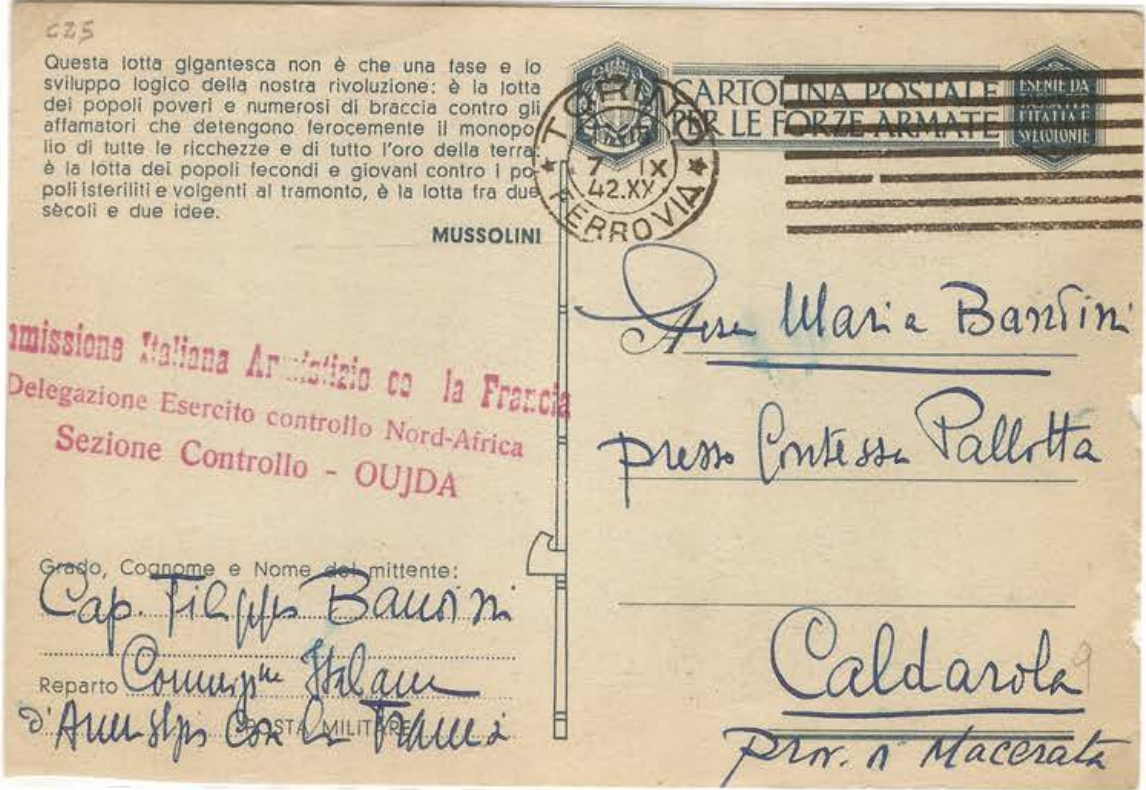 c25
Questa lotta gigantesca non è che una fase e lo
sviluppo logico della nostra rivoluzione: è la lotta
dei popoli poveri e numerosi di braccia contro gli
affamatori che detengono ferocemente il monopo
lio di tutte le ricchezze e di tutto l'oro della terra
è la lotta dei popoli fecondi e giovani contro i po-
poli isteriliti e volgenti al tramonto, è la lotta fra due
sècoli e due idee.
MUSSOLINI
CARTOLINA POSTALE
PER LE FORZE ARMATE
ESENTE DA
L'ITALIA E
SVE COLONIE
TORINO
7 IX
42.XX
FERROVIA
mmissione Italiana Armistizio co la Francia
Delegazione Esercito controllo Nord-Africa
Sezione Controllo - OUJDA
Maria Bandini
presso Contessa Pallotta
Caldarola
Prov. Macerata
Grado, Cognome e Nome del mittente:
Cap. Filippo Bandini
Reparto Commissne Italiana
POSTA MILITARE
d'Armistizio con la Francia